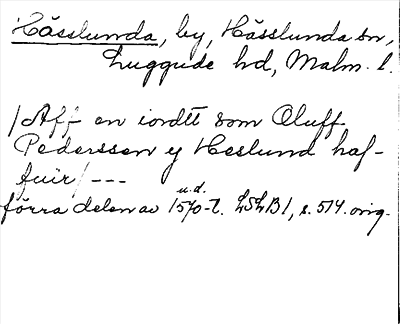 Hässlunda, by, Hässlunda sn,
Luggude hd, Malm. l.
/Aff en iordtt som Oluff
Pederssen ij Heslund haf-
fuir/ ---
u.d.
förra delen av 1570-t. LSLB1, s. 514. orig.